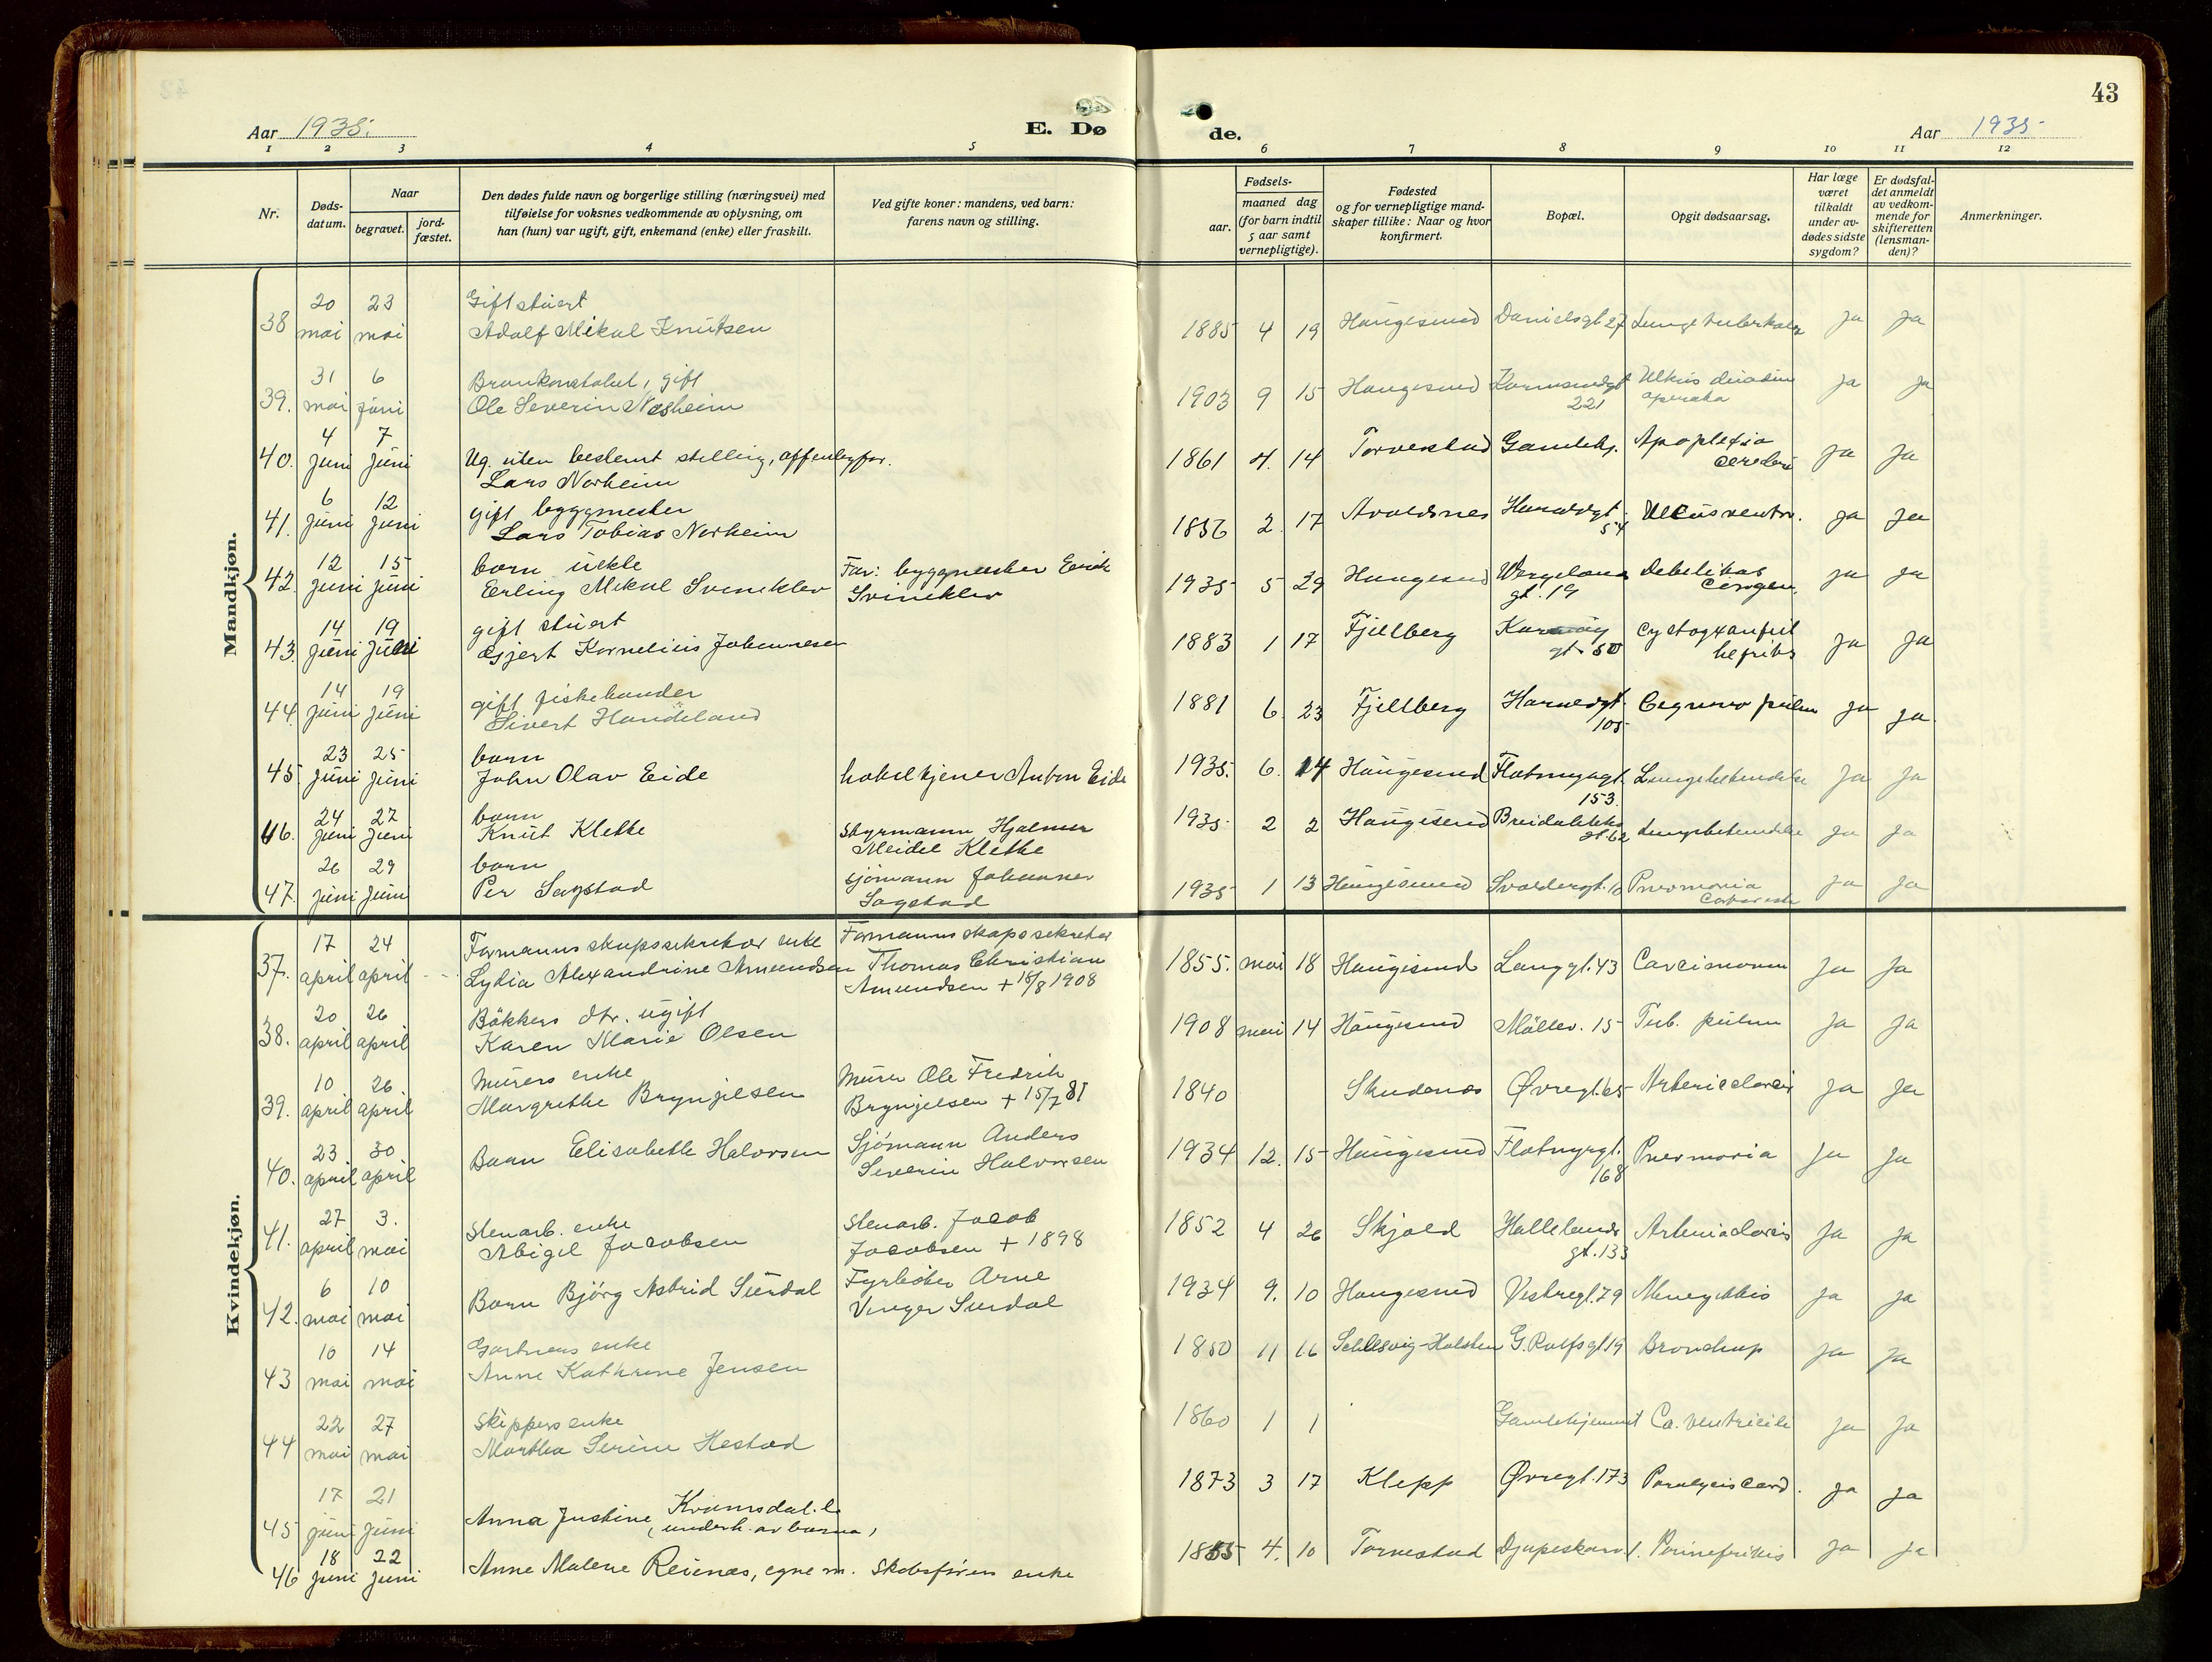 43
Aar 1935.
E. Dø
de.
Aar 1935
1 2 3 4 5 6 7 8 9 10 11 12
Nr.
Døds-
datum.
Naar
begravet.
jord-
fæstet.
Den dødes fulde navn og borgerlige stilling (næringsvei) med
tilføielse for voksnes vedkommende av oplysning, om
han (hun) var ugift, gift, enkemand (enke) eller fraskilt.
Ved gifte koner: mandens, ved barn:
farens navn og stilling.
Fødsels-
aar.
maaned dag
(for barn indtil
5 aar samt
vernepligtige).
Fødested
og for vernepligtige mand-
skaper tillike: Naar og hvor
konfirmert.
Bopæl.
Opgit dødsaarsag.
Har læge
været
tilkaldt
under av-
dødes sidste
sygdom?
Er dødsfal-
det anmeldt
av vedkom-
mende for
skifteretten
(lensman-
den)?
Anmerkninger.
Mandkjøn.
38 20 mai 23 mai Gift stuert
Adolf Mikal Knutsen
1885 4 19 Haugesund Danielsgt 27 Ja Ja
39. 31 mai 6 juni Brankonstabel, gift
Ole Severin Nesheim
1903 9 15 Haugesund Karmsundgt
221 Ulkus duodeni
operata ja ja
40. 4 juni 7 juni Ug. uten bestemt stilling,
Lars Norheim
1861 4. 14 Torvestad Gamlehj. Apoplexia
cerebri ja ja
41. 6 juni 12 juni gift byggmester
Lars Tobias Norheim
1856 2 17 Avaldsnes Haraldgt.
54 Ulcus ventr. ja ja
42. 12 juni 15 juni barn uekte
Erling Mikal Svineklev
Far: byggmester Eirik
Svineklev
1935 5 29 Haugesund Wergeland
gt. 19 Debilitas
congen. ja ja
43. 14 juni 19 juni gift stuert
Gjert Kornelius Johannesen
1883 1 17 Fjellberg
gt. 50 ja ja
44. 14 juni 19 juni gift fiskehandler
Sivert Handeland
1881 6 23 Fjellberg Haraldgt.
105 pulm ja ja
45. 23 juni 25 juni barn
John Olav Eide
hotelkjener Anton Eide
1935. 6. 14 Haugesund Flotmyrgt.
153. Lungebetendelse Ja Ja
46. 24 juni 27 juni barn
Knut Klette
Styrmann Hjalmar
Meidel Klette
1935 2 2 Haugesund
gt. 62 Lungebetendelse ja ja
47. 26 juni 29 juni barn
Per Sagstad
sjømann Johannes
Sagstad
1935 1 13 Haugesund Svoldergt. 10 Pneomonia
ja Ja
Kvindekjøn.
37. 17 april 24 april Formannskapssekretær enke
Lydia Alexandrine Amundsen
Formannskapssekretær
Thomas Christian
Amundsen + 18/8 1908
1855. mai 18 Haugesund Langgt. 43 Carcinoma Ja Ja
38. 20 april 26 april Bökkers dtr. ugift
Karen Marie Olsen
1908 mai 14 Haugesund Möllev. 15 Tub. pulm Ja Ja
39. 10 april 26 april Murers enke
Margrethe Brynjelsen
Murer Ole Fredrik
Brynjelsen + 15/7 81
1840 Skudenes Øvregt. 65 ja ja
40. 23 april 30 april Barn Elisabeth Halvorsen
Sjömann Anders
Severin Halvorsen
1934 12. 15 Haugesund Flotmyrgt.
168 Pnevmonia Ja Ja
41. 27 april 3. mai Stenarb. enke
Abigel Jacobsen
Stenarb. Jacob
Jacobsen + 1898
1852 4 26 Skjold
gt. 133 Ja Ja
42. 6 mai 10 mai Barn Björg Astrid Surdal
Fyrböter Arne
Surdal
1934 9. 10 Haugesund Vestregt. 79 Ja Ja
43 10 mai 14 mai Gartners enke
Anne Kathrine Jensen
1850 11 16 Schlesvig-Holsten G. Rolfsgt 19 Ja Ja
44 22 mai 27 mai Skippers enke
Martha Serine Hestad
1860 1 1 Gamlehjemmet Ca. ventriculi Ja Ja
45 17 juni 21 juni Anna Justine Kvamsdal. e
(underh. av barna)
1873 3 17 Klepp Øvregt. 173 Paralysis card. Ja Ja
46 18 juni 22 juni Anne Malene Reinæs, egne m. Skoleførers enke
1855 4. 10 Torvestad Ja Ja